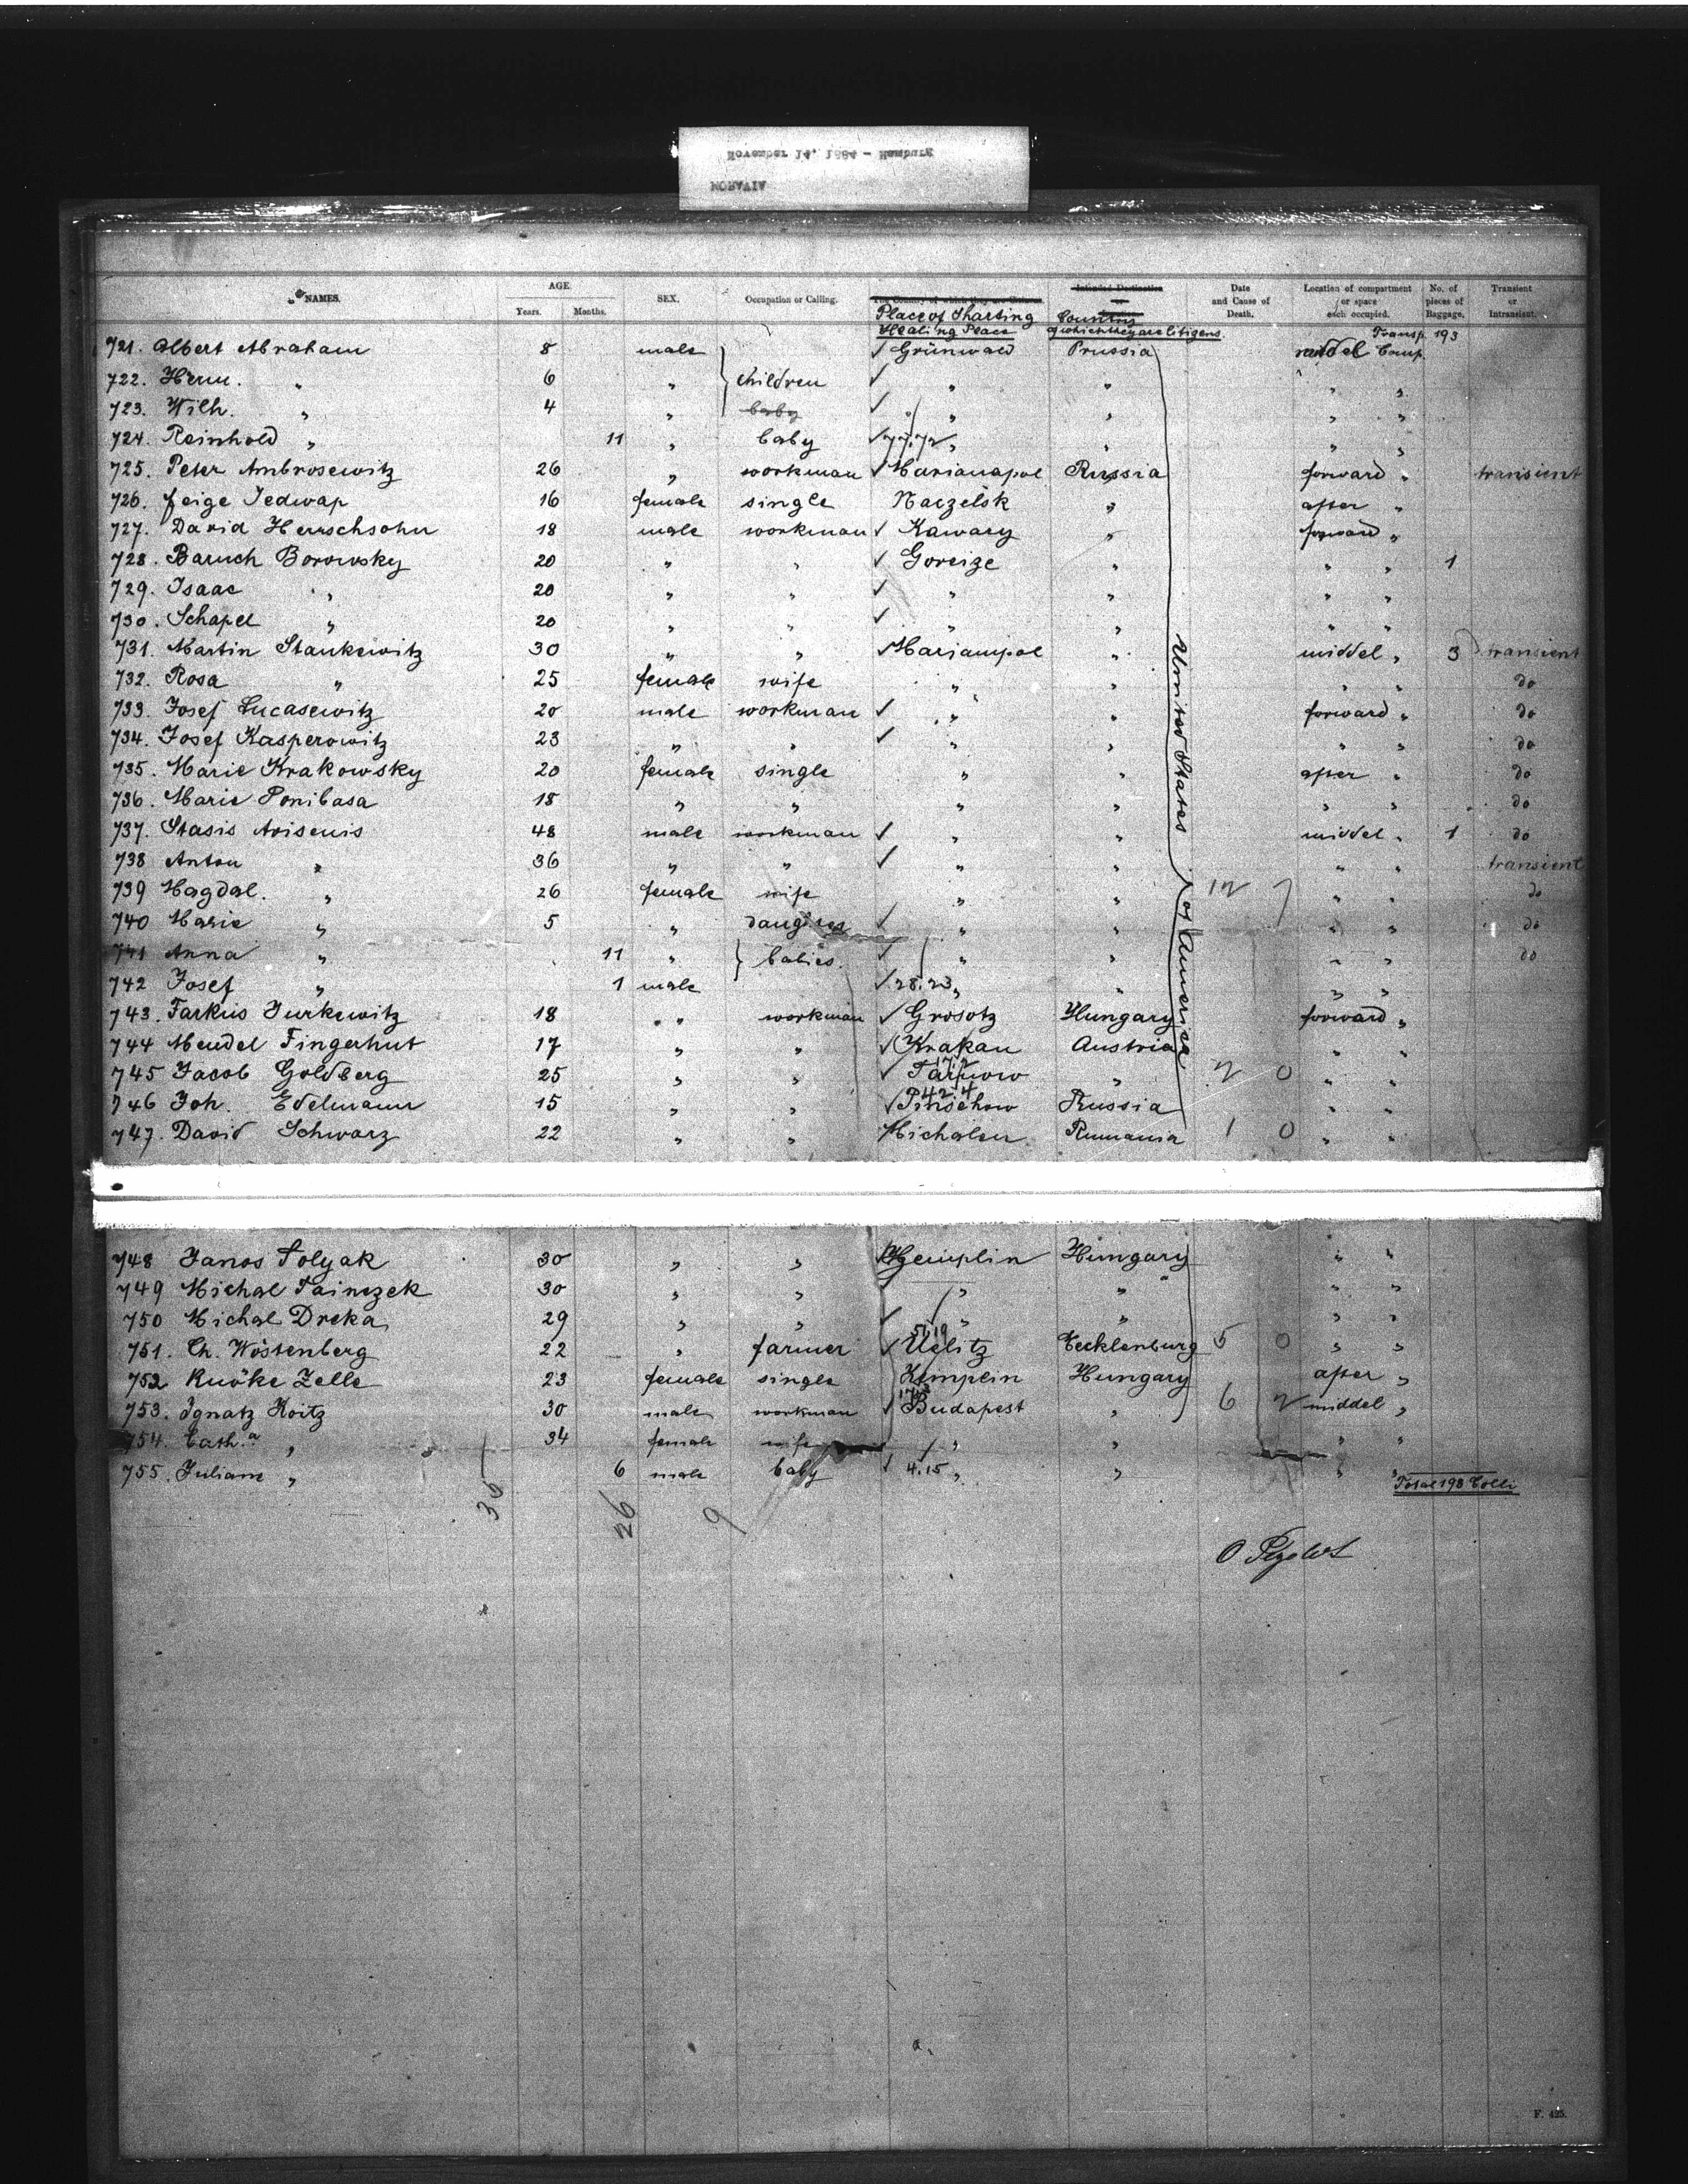 November 14, 1884 - Hamburg
MORAVIA
NAMES. AGE SEX. Occupation or Calling. Date and Cause of Death. Location of compartment or space each occupied. No. of pieces of Baggage. Transient or Intransient.
Years. Months. Place of Sharting Country
Healing Place of which they are Citizens. Transp. 193
721. Albert Abraham 8 male ✓ Grünwald Prussia middel Comp.
722. Herm. " 6 " } children ✓ " " " "
723. Wilh. " 4 " baby ✓ " " " "
724. Reinhold " 11 " baby ✓ 77.72 " " " "
725. Peter Ambrosewitz 26 " workman ✓ Marianapol Russia forward " transient
726. Feige Jedwap 16 female single Naczelsk " after "
727. David Herrschsohn 18 male workman ✓ Kawary " forward "
728. Baruch Borowsky 20 " " ✓ Goreize " " " 1
729. Isaac " 20 " " ✓ " " " "
730. Schapel " 20 " " ✓ " " " "
731. Martin Stankewitz 30 " " ✓ Mariampol " middel " 3 transient
732. Rosa " 25 female wife " " " " do
733. Josef Lucasewitz 20 male workman ✓ " " forward " do
734. Josef Kasperowitz 23 " " ✓ " " " " do
735. Marie Krakowsky 20 female single " " after " do
736. Marie Ponibasa 18 " " " " " " do
737. Stasis Avisenis 48 male workman ✓ " " middel " 1 do
738 Anton " 36 " " ✓ " " " " transient
739 Magdal. " 26 female wife " " 12 7 " " do
740 Marie " 5 " ✓ " " " " do
741 Anna " 11 " } babies. ✓ " " " " do
742 Josef " 1 male ✓ 28.23 " " " "
743. Farkus Jurkewitz 18 " " workman ✓ Grosotz Hungary forward "
744 Mendel Fingerhut 17 " " ✓ Krakau Austria " "
745 Jacob Goldberg 25 " " ✓ Tarnow " 2 0 " "
746 Joh. Edelmann 15 " " ✓ Pinschow Russia " "
747. David Schwarz 22 " " Michalen Rumania 1 0 " "
United States of America
748 Janos Polyak 30 " " Zemplin Hungary " "
749 Michal Tainczek 30 " " " " " "
750 Michal Dreka 29 " " ✓ " " " "
751. Ch. Wöstenberg 22 " farmer ✓ Uelitz Mecklenburg 5 0 " "
752 Knöke Zelle 23 female single Kemplein Hungary after "
753. Ignatz Koitz 30 male workman ✓ Budapest " 6 2 middel "
754. Cath.a " 34 female wife " " " "
755. Juliam " 6 male baby ✓ 4.15 " " " "
Total 193 Colli
26 9
F. 425.